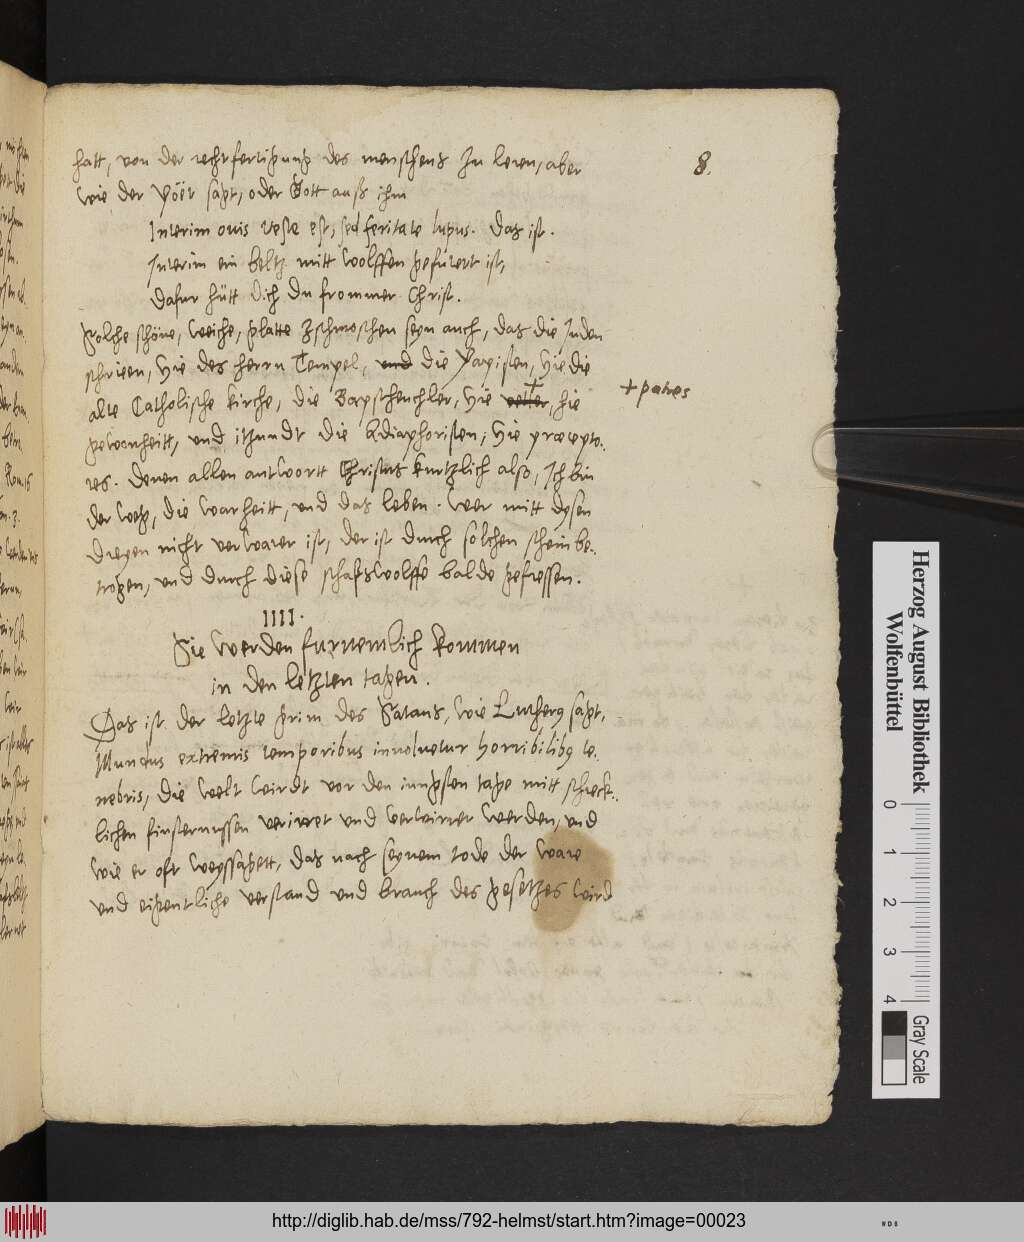 8.
hatt, von der rechtfertigung des menschens zu leren, aber
wie der Poët sagt, oder Gott auß ihm
Interim ovis veste est, sed feritate lupus. Das ist.
Interim ein beltz mitt wolffen gefutert ist,
Dafur hütt dich du frommer Christ.
Solche schöne, weiche, glatte seyn auch, das die Juden
schrieen, Hie des herrn Tempel, und die Papisten, Hie die
alte Catholische kirche, die Hie vetter, hie
+ patres
gewonheitt, und itzundt die Adiaphoristen, Hie præcepto-
res. Denen allen antwortt Christus kurtzlich also, Ich bin
der weg, die warheitt, und das leben. Wer mitt dysen
dreyen nicht verwaret ist, der ist durch solchen schein be-
trogen, und durch diese schafswolffe balde gefressen.
IIII.
Sie werden furnemlich kommen
in den letzten tagen.
Das ist der letzte grim des Satans, wie Luther9 sagt,
Mundus extremis temporibus involvetur horribilib9 te-
nebris, die welt wirdt vor den iungsten tage mitt schreck-
lichen finsternussen verirret und verwirret werden, und
wie er oft weyssagett, das nach seynem tode der ware
und eigentliche verstand und brauch des gesetzes wird
Herzog August Bibliothek
Wolfenbüttel
0 1 2 3 4
Gray Scale
http://diglib.hab.de/mss/792-helmst/start.htm?image=00023